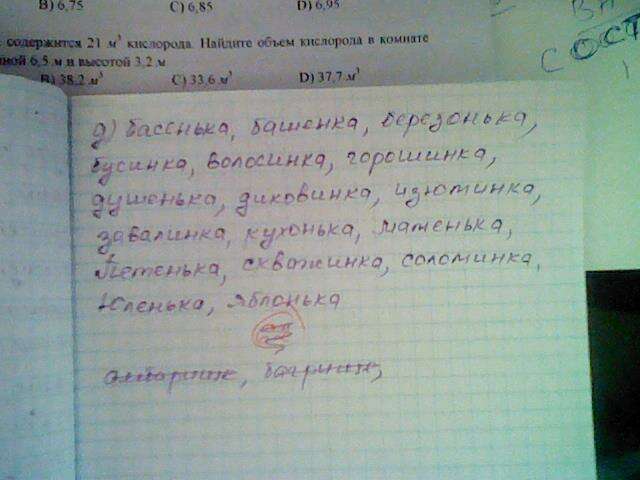 B) 6,75 C) 6,85 D) 6,95
содержится 21 м³ кислорода. Найдите объем кислорода в комнате
6,5 м и высотой 3,2 м
B) 38,2 м³ C) 33,6 м³ D) 37,7 м³
СОСТ
д) басенька, башенка, березонька,
бусинка, волосинка, горошинка,
душенька, диковинка, изюминка,
завалинка, кухонька, маменька,
Петенька, скважинка, соломинка,
Юленька, яблонька